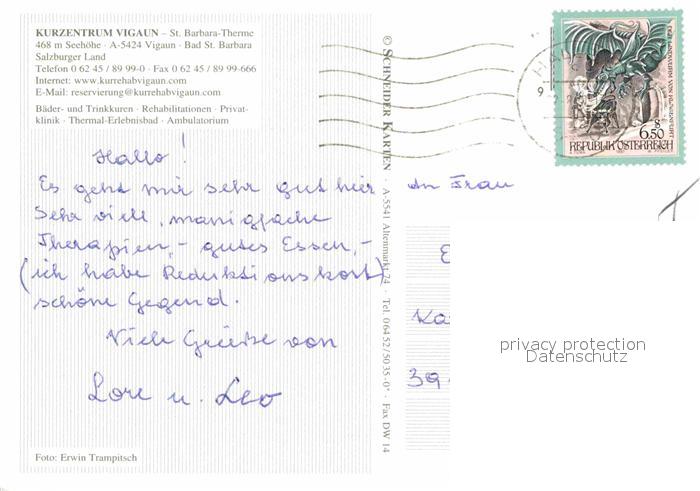 KURZENTRUM VIGAUN – St. Barbara-Therme
468 m Seehöhe · A-5424 Vigaun · Bad St. Barbara
Salzburger Land
Telefon 0 62 45 / 89 99-0 · Fax 0 62 45 / 89 99-666
Internet: www.kurrehabvigaun.com
E-Mail: reservierung@kurrehabvigaun.com
Bäder- und Trinkkuren · Rehabilitationen · Privat-
klinik · Thermal-Erlebnisbad · Ambulatorium
Hallo!
Es geht mir sehr gut hier
Sehr viele, manigfache
Therapien, - gutes Essen, -
(ich habe Reduktionskost)
schöne Gegend.
Viele Grüße von
Lore u. Leo
Foto: Erwin Trampitsch
© SCHNEIDER KARTEN · A-5541 Altenmarkt 74 · Tel. 0 64 52 / 50 35-0* · Fax DW 14
6.50 S
REPUBLIK ÖSTERREICH
An Frau
E
Ka
39
privacy protection
Datenschutz